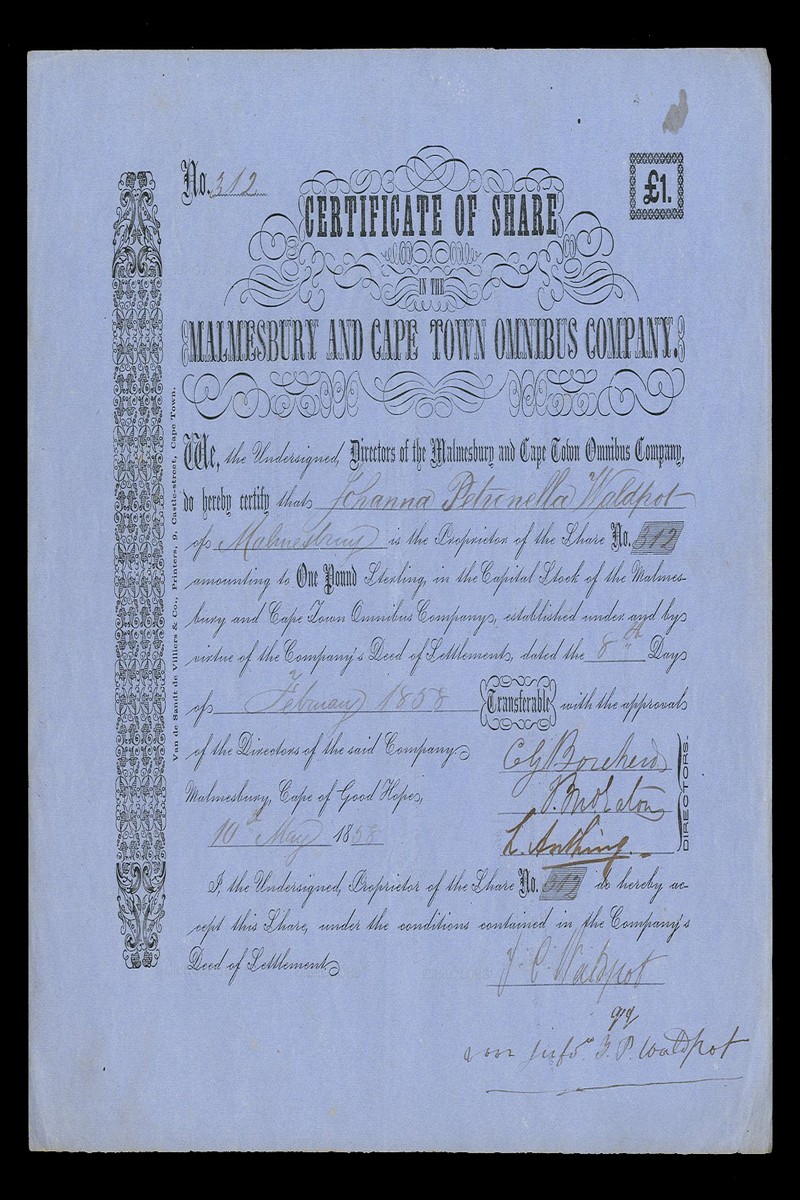 No. 312
£1.
CERTIFICATE OF SHARE
IN THE
MALMESBURY AND CAPE TOWN OMNIBUS COMPANY.
We, the Undersigned, Directors of the Malmesbury and Cape Town Omnibus Company,
do hereby certify that Johanna Petronella Waldpot
of Malmesbury is the Proprietor of the Share No. 312
amounting to One Pound Sterling, in the Capital Stock of the Malmes-
bury and Cape Town Omnibus Company, established under and by
virtue of the Company's Deed of Settlement, dated the 8th Day
of February 1858 Transferable with the approval
of the Directors of the said Company.
Malmesbury, Cape of Good Hope,
10th May 1858
DIRECTORS.
L. Anthing.
I, the Undersigned, Proprietor of the Share No. 312 do hereby ac-
cept this Share, under the conditions contained in the Company's
Deed of Settlement
J. C. Waldpot
J. P. Waldpot
Van de Sandt de Villiers & Co., Printers, 9, Castle-street, Cape Town.